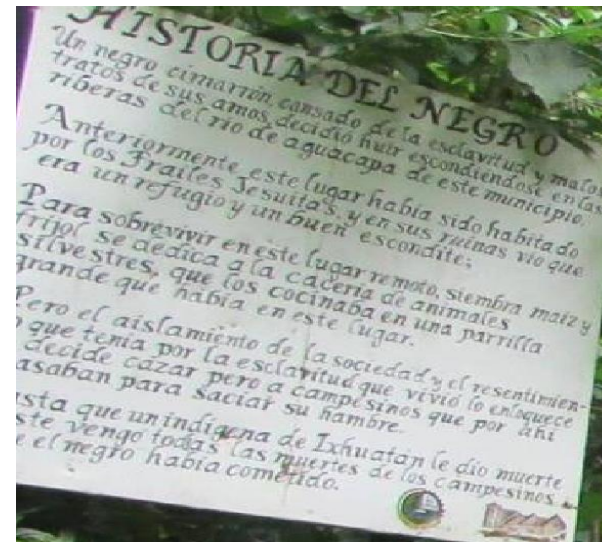 HISTORIA DEL NEGRO
Un negro cimarrón cansado de la esclavitud y malos
tratos de sus amos, decidió huir escondiendose en las
riberas del río de aguacapa de este municipio.
Anteriormente este lugar habia sido habitado
por los Frailes Jesuitas, y en sus ruinas vio que
era un refugio y un buen escondite;
Para sobrevivir en este lugar remoto, siembra maíz y
frijol se dedica a la caceria de animales
silvestres, que los cocinaba en una parrilla
grande que había en este lugar.
Pero el aislamiento de la sociedad y el resentimien-
o que tenia por la esclavitud que vivió lo enloquece
decide cazar pero a campesinos que por ahi
asaban para saciar su hambre.
sta que un indígena de Ixhuatán le dio muerte
ste vengo todas las muertes de los campesinos
e el negro había cometido.